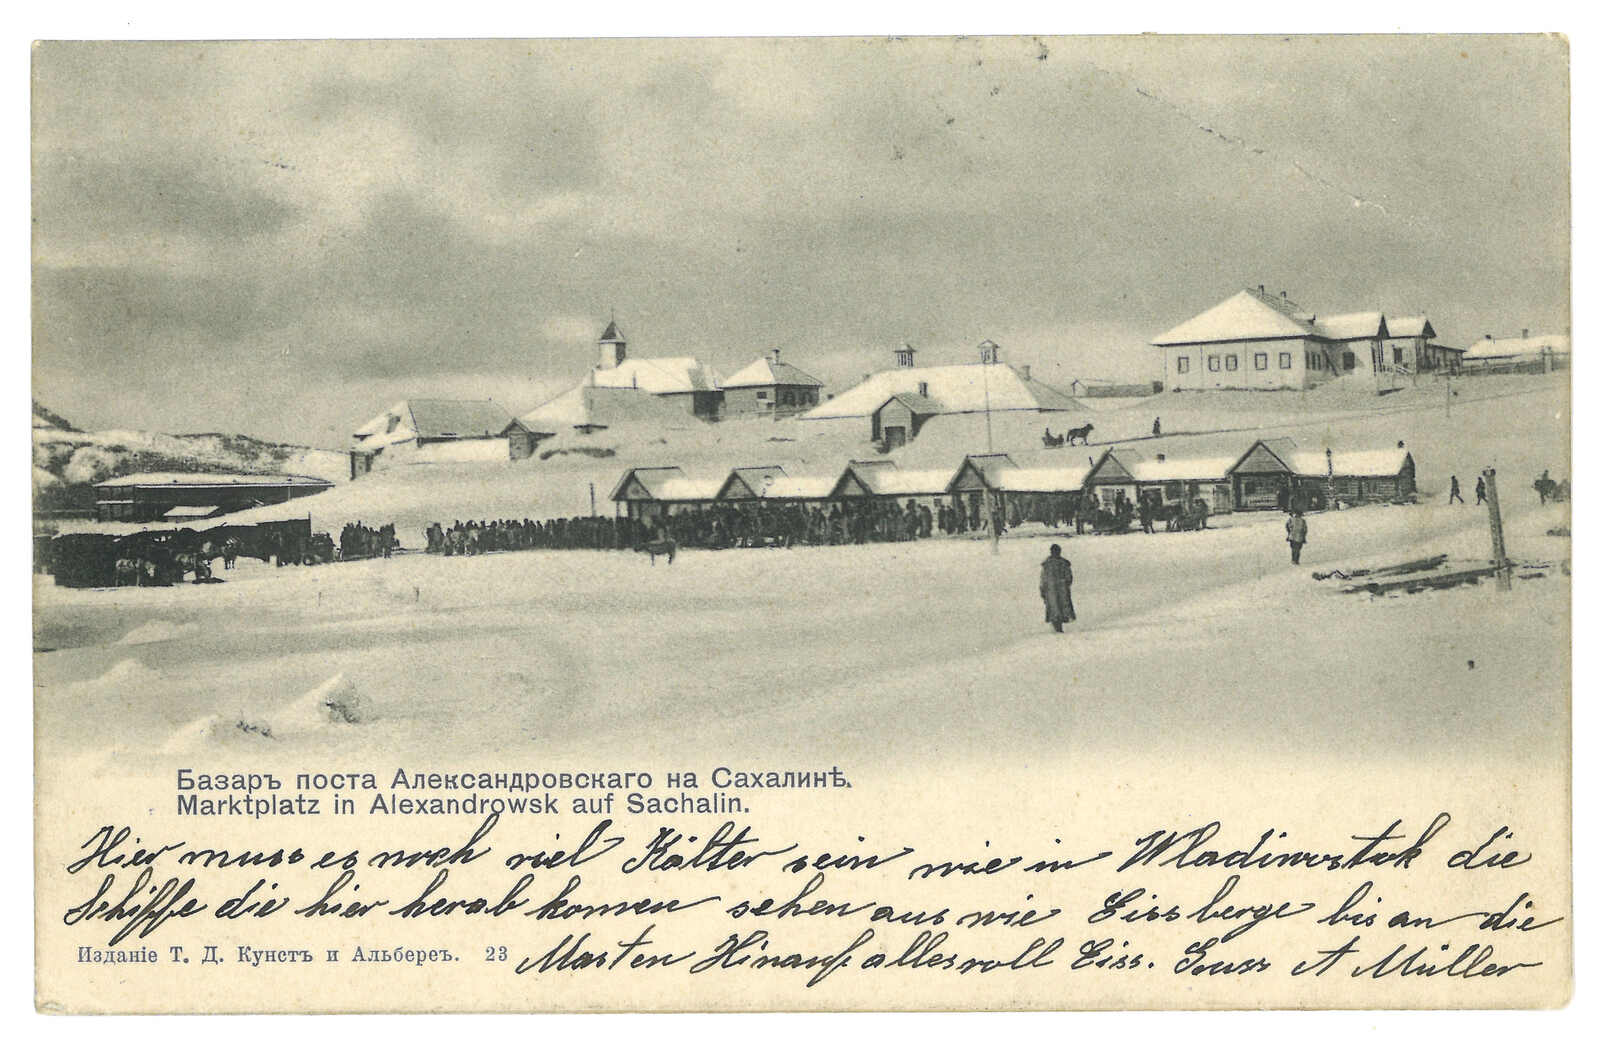 Базаръ поста Александровскаго на Сахалинѣ.
Marktplatz in Alexandrowsk auf Sachalin.
Hier muss es noch viel Kälter sein wie in Wladiwostok die
Schiffe die hier herab komen sehen aus wie Eissberge bis an die
Изданіе Т. Д. Кунстъ и Альберсъ. 23
Masten Hinauf alles voll Eiss. Gruss A Müller